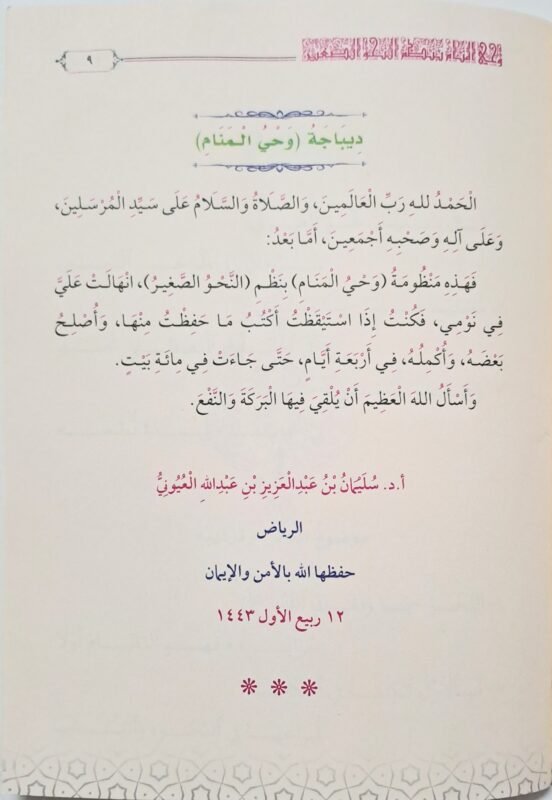 وحي المنام بنظم النحو الصغير
٩
دِيبَاجَةُ (وَحْيُ الْمَنَامِ)
الْحَمْدُ للهِ رَبِّ الْعَالَمِينَ، وَالصَّلَاةُ وَالسَّلَامُ عَلَى سَيِّدِ الْمُرْسَلِينَ،
وَعَلَى آلِهِ وَصَحْبِهِ أَجْمَعِينَ، أَمَّا بَعْدُ:
فَهَذِهِ مَنْظُومَةُ (وَحْيُ الْمَنَامِ) بِنَظْمِ (النَّحْوُ الصَّغِيرُ)، انْهَالَتْ عَلَيَّ
فِي نَوْمِي، فَكُنْتُ إِذَا اسْتَيْقَظْتُ أَكْتُبُ مَا حَفِظْتُ مِنْهَا، وَأُصْلِحُ
بَعْضَهُ، وَأُكْمِلُهُ، فِي أَرْبَعَةِ أَيَّامٍ، حَتَّى جَاءَتْ فِي مِائَةِ بَيْتٍ.
وَأَسْأَلُ اللهَ الْعَظِيمَ أَنْ يُلْقِيَ فِيهَا الْبَرَكَةَ وَالنَّفْعَ.
أ.د. سُلَيْمَانُ بْنُ عَبْدِالْعَزِيزِ بْنِ عَبْدِاللهِ الْعُيُونِيُّ
الرياض
حفظها الله بالأمن والإيمان
١٢ ربيع الأول ١٤٤٣